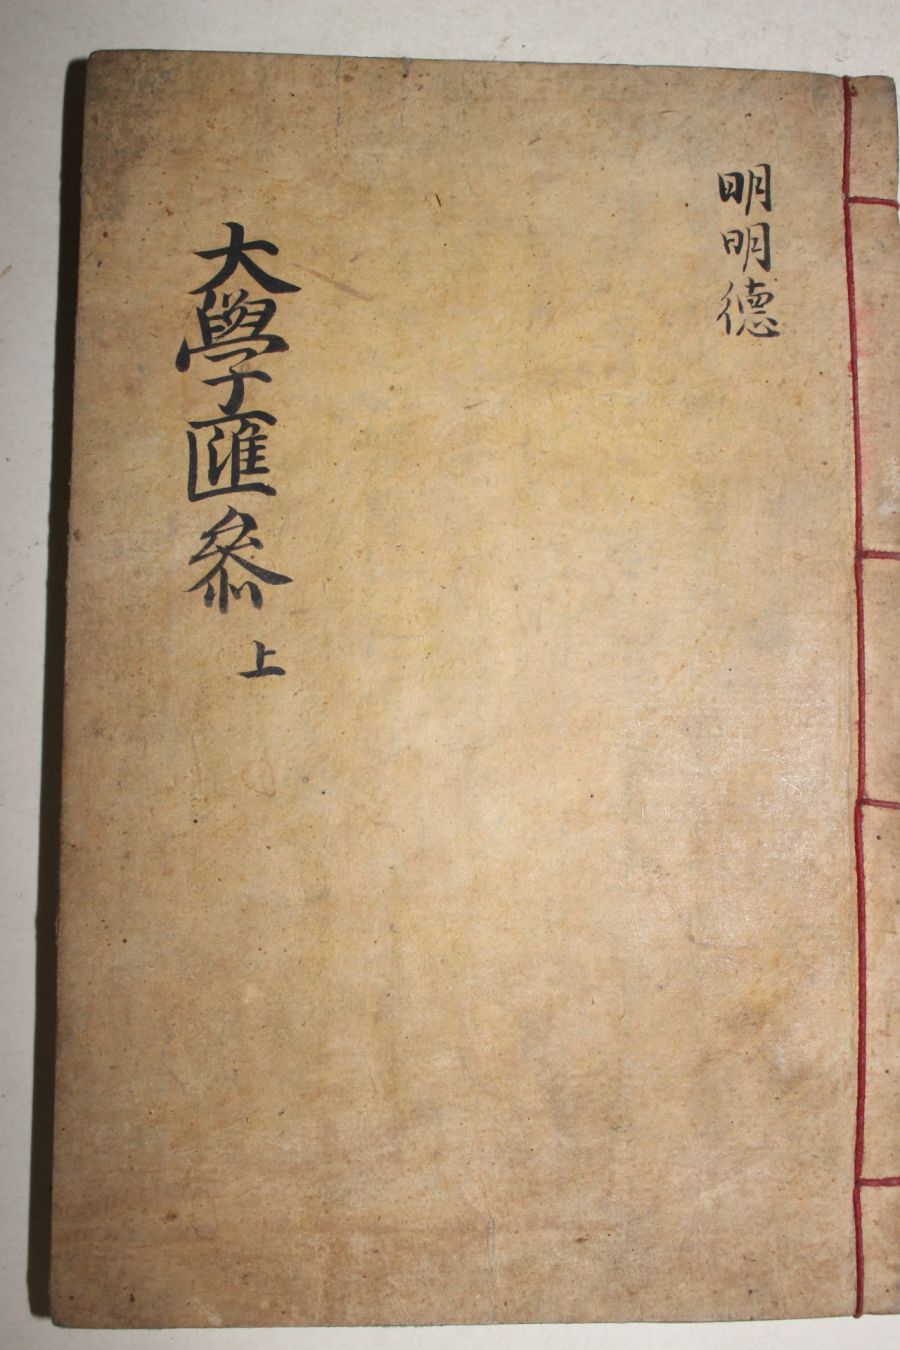 明明德
大學匯參 上